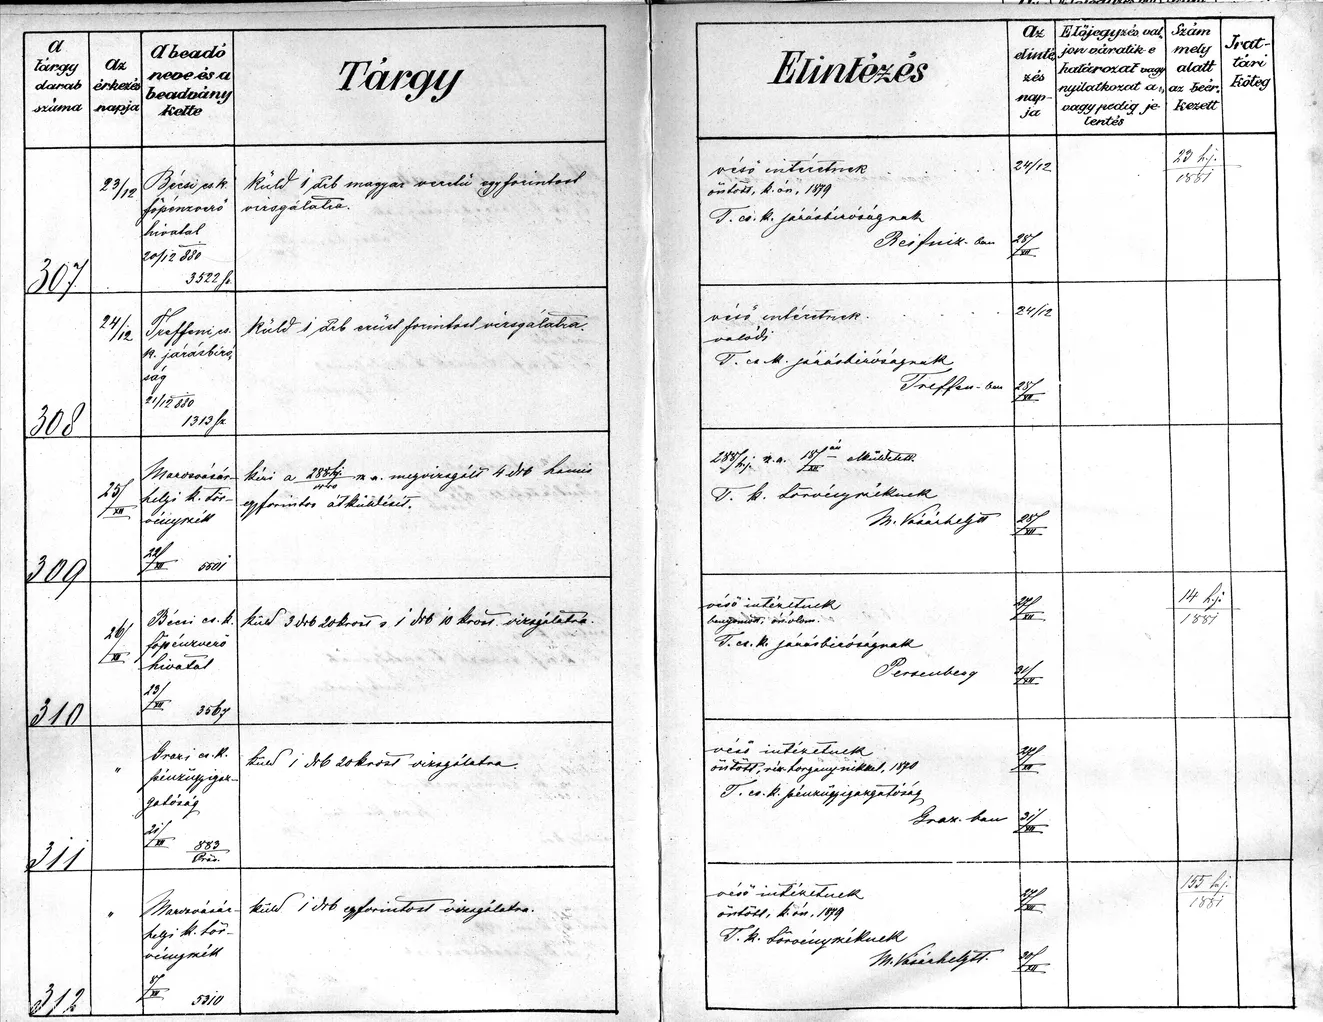 A tárgy darab száma
Az érkezés napja
A beadó neve és a beadvány kelte
Tárgy
Elintézés
Az elintézés napja
Előjegyzés, valjon váratik e határozat vagy nyilatkozat a, vagy pedig jelentés
Szám mely alatt az beérkezett
Irattári köteg
307
23/12
Bécsi cs. k.
főpénzverő
hivatal
20/12 880
3522 sz.
küld 1 drb magyar veretű egyforintost
vizsgálatra.
véső intézetnek
öntött, k. ón, 1879
T. cs. k. járásbiróságnak
Reifniz-ban
24/12
28/XII
23 h.j.
1881
308
24/12
Treffeni cs.
k. járásbiró
ság
21/12 880
1313 sz
küld 1 drb ezüst forintost vizsgálatra.
véső intézetnek.
valódi
T. cs. k. járásbiróságnak
Treffen-ban
24/12
28/XII
309
25/XII
Marosvásár-
helyi k. tör-
vényszék
22/XII
5501
kéri a 288 h.j. n. a. megvizsgált 4 drb hamis
egyforintos átküldését.
288/h.j. n. a. 18/XII án elküldetett.
T. k. törvényszéknek
M. Vásárhelytt
28/XII
310
26/XII
Bécsi cs. k.
főpénzverő
hivatal
23/XII
3567
küld 3 drb 20krost s 1 drb 10 krost vizsgálatra.
véső intézetnek
T. cs. k. járásbiróságnak
Persenberg
27/XII
31/XII
14 h.j.
1881
311
"
Grazi cs. k.
pénzügyigaz-
gatóság
21/XII
883
Präs.
küld 1 drb 20krost vizsgálatra.
véső intézetnek
öntött, 1870
T. cs. k. pénzügyigazgatóság
Graz-ban
27/XII
31/XII
312
"
Marosvásár-
helyi k. tör-
vényszék
8/XII
5310
küld 1 drb egyforintost vizsgálatra.
véső intézetnek
öntött, k. ón, 1879
T. k. törvényszéknek
M. Vásárhelytt.
27/XII
30/XII
155 h.j.
1881